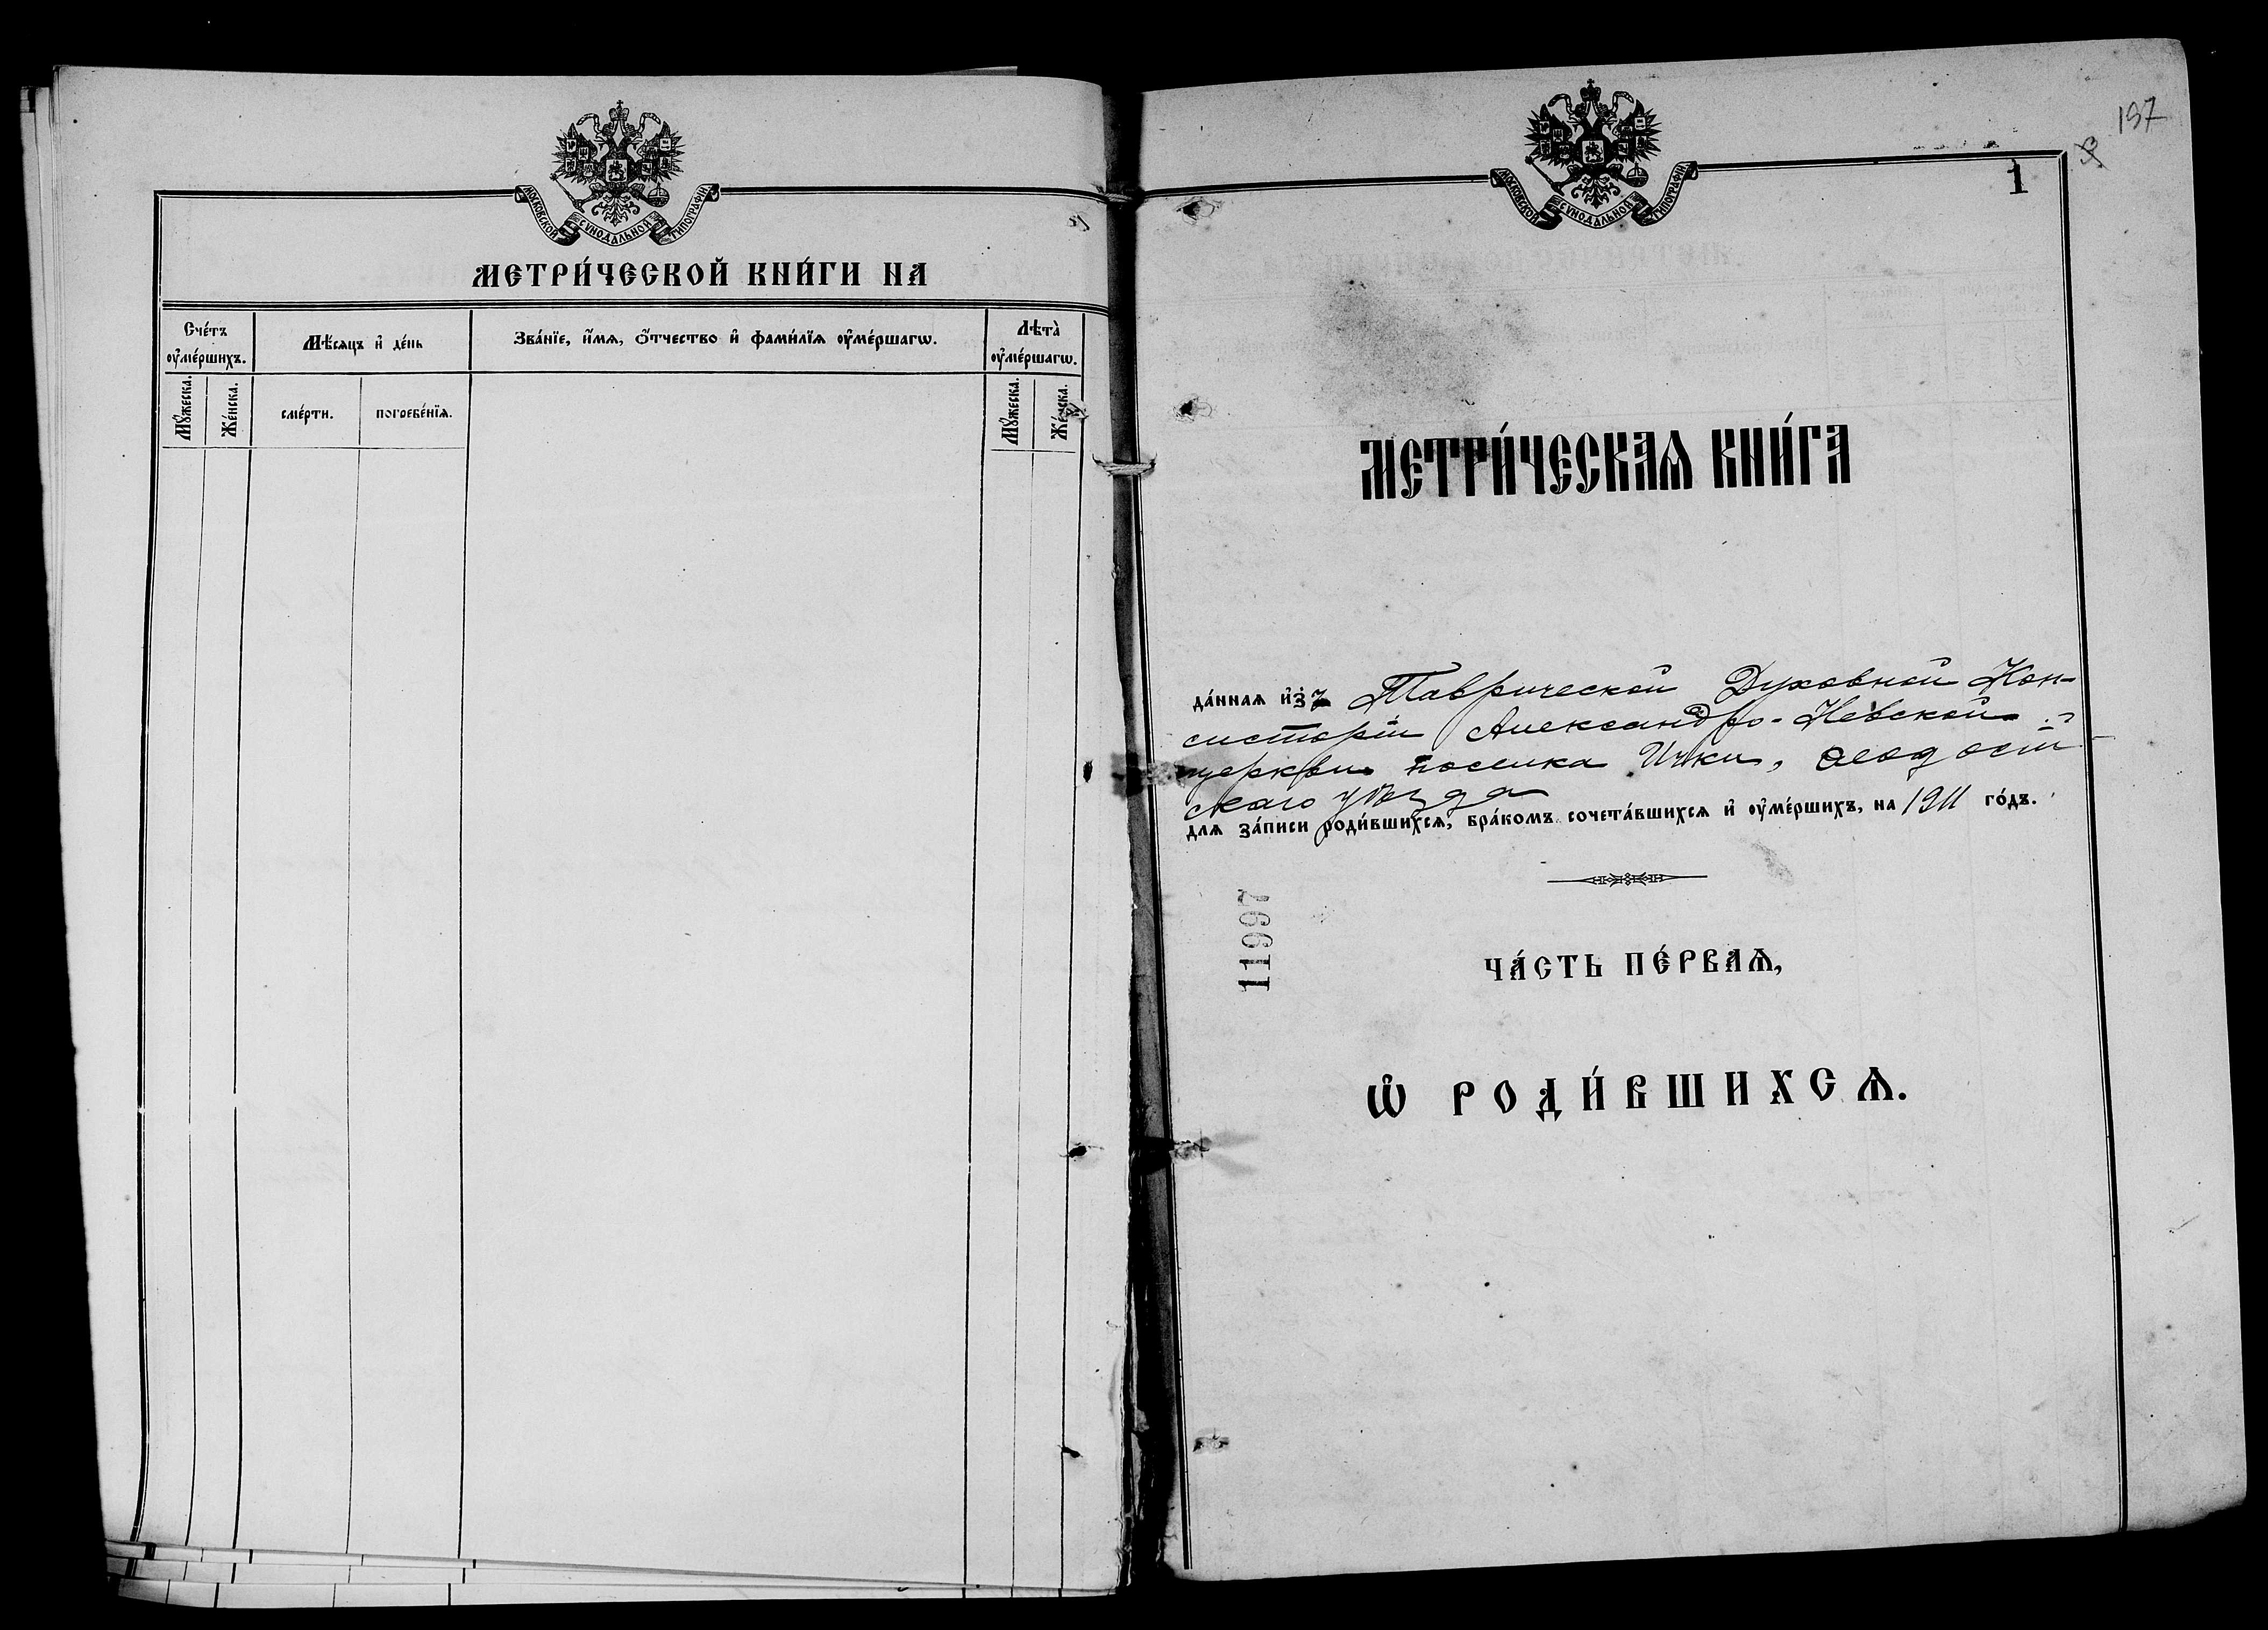 МОСКОВСКОЙ СѴНОДАЛЬНОЙ ТИПОГРАФІИ
МЕТРИ́ЧЕСКОЙ КНИ́ГИ НА
Сче́тъ оу҆ме́ршихъ.
Мѣ́сяцъ и҆ де́нь
Зва́нїе, и҆́мѧ, ѻ҆́тчество и҆ фами́лїѧ оу҆ме́ршагѡ.
Лѣта̀ оу҆ме́ршагѡ.
Мꙋ́жеска.
Же́нска.
сме́рти.
погребе́нїѧ.
Мꙋ́жеска.
Же́нска.
197
МОСКОВСКОЙ СѴНОДАЛЬНОЙ ТИПОГРАФІИ
1
МЕТРИ́ЧЕСКАѦ КНИ́ГА
да́ннаѧ и҆зъ Таврической Духовной Кон-
систоріи Александро-Невской
церкви поселка Ички, Ѳеодосій
скаго уѣзда
для за́писи роди́вшихсѧ, бра́комъ сочета́вшихсѧ и҆ оу҆ме́ршихъ, на 1911 го́дъ.
11997
ЧА́СТЬ ПЕ́РВАѦ,
Ѡ҆ РОДИ́ВШИХСѦ.